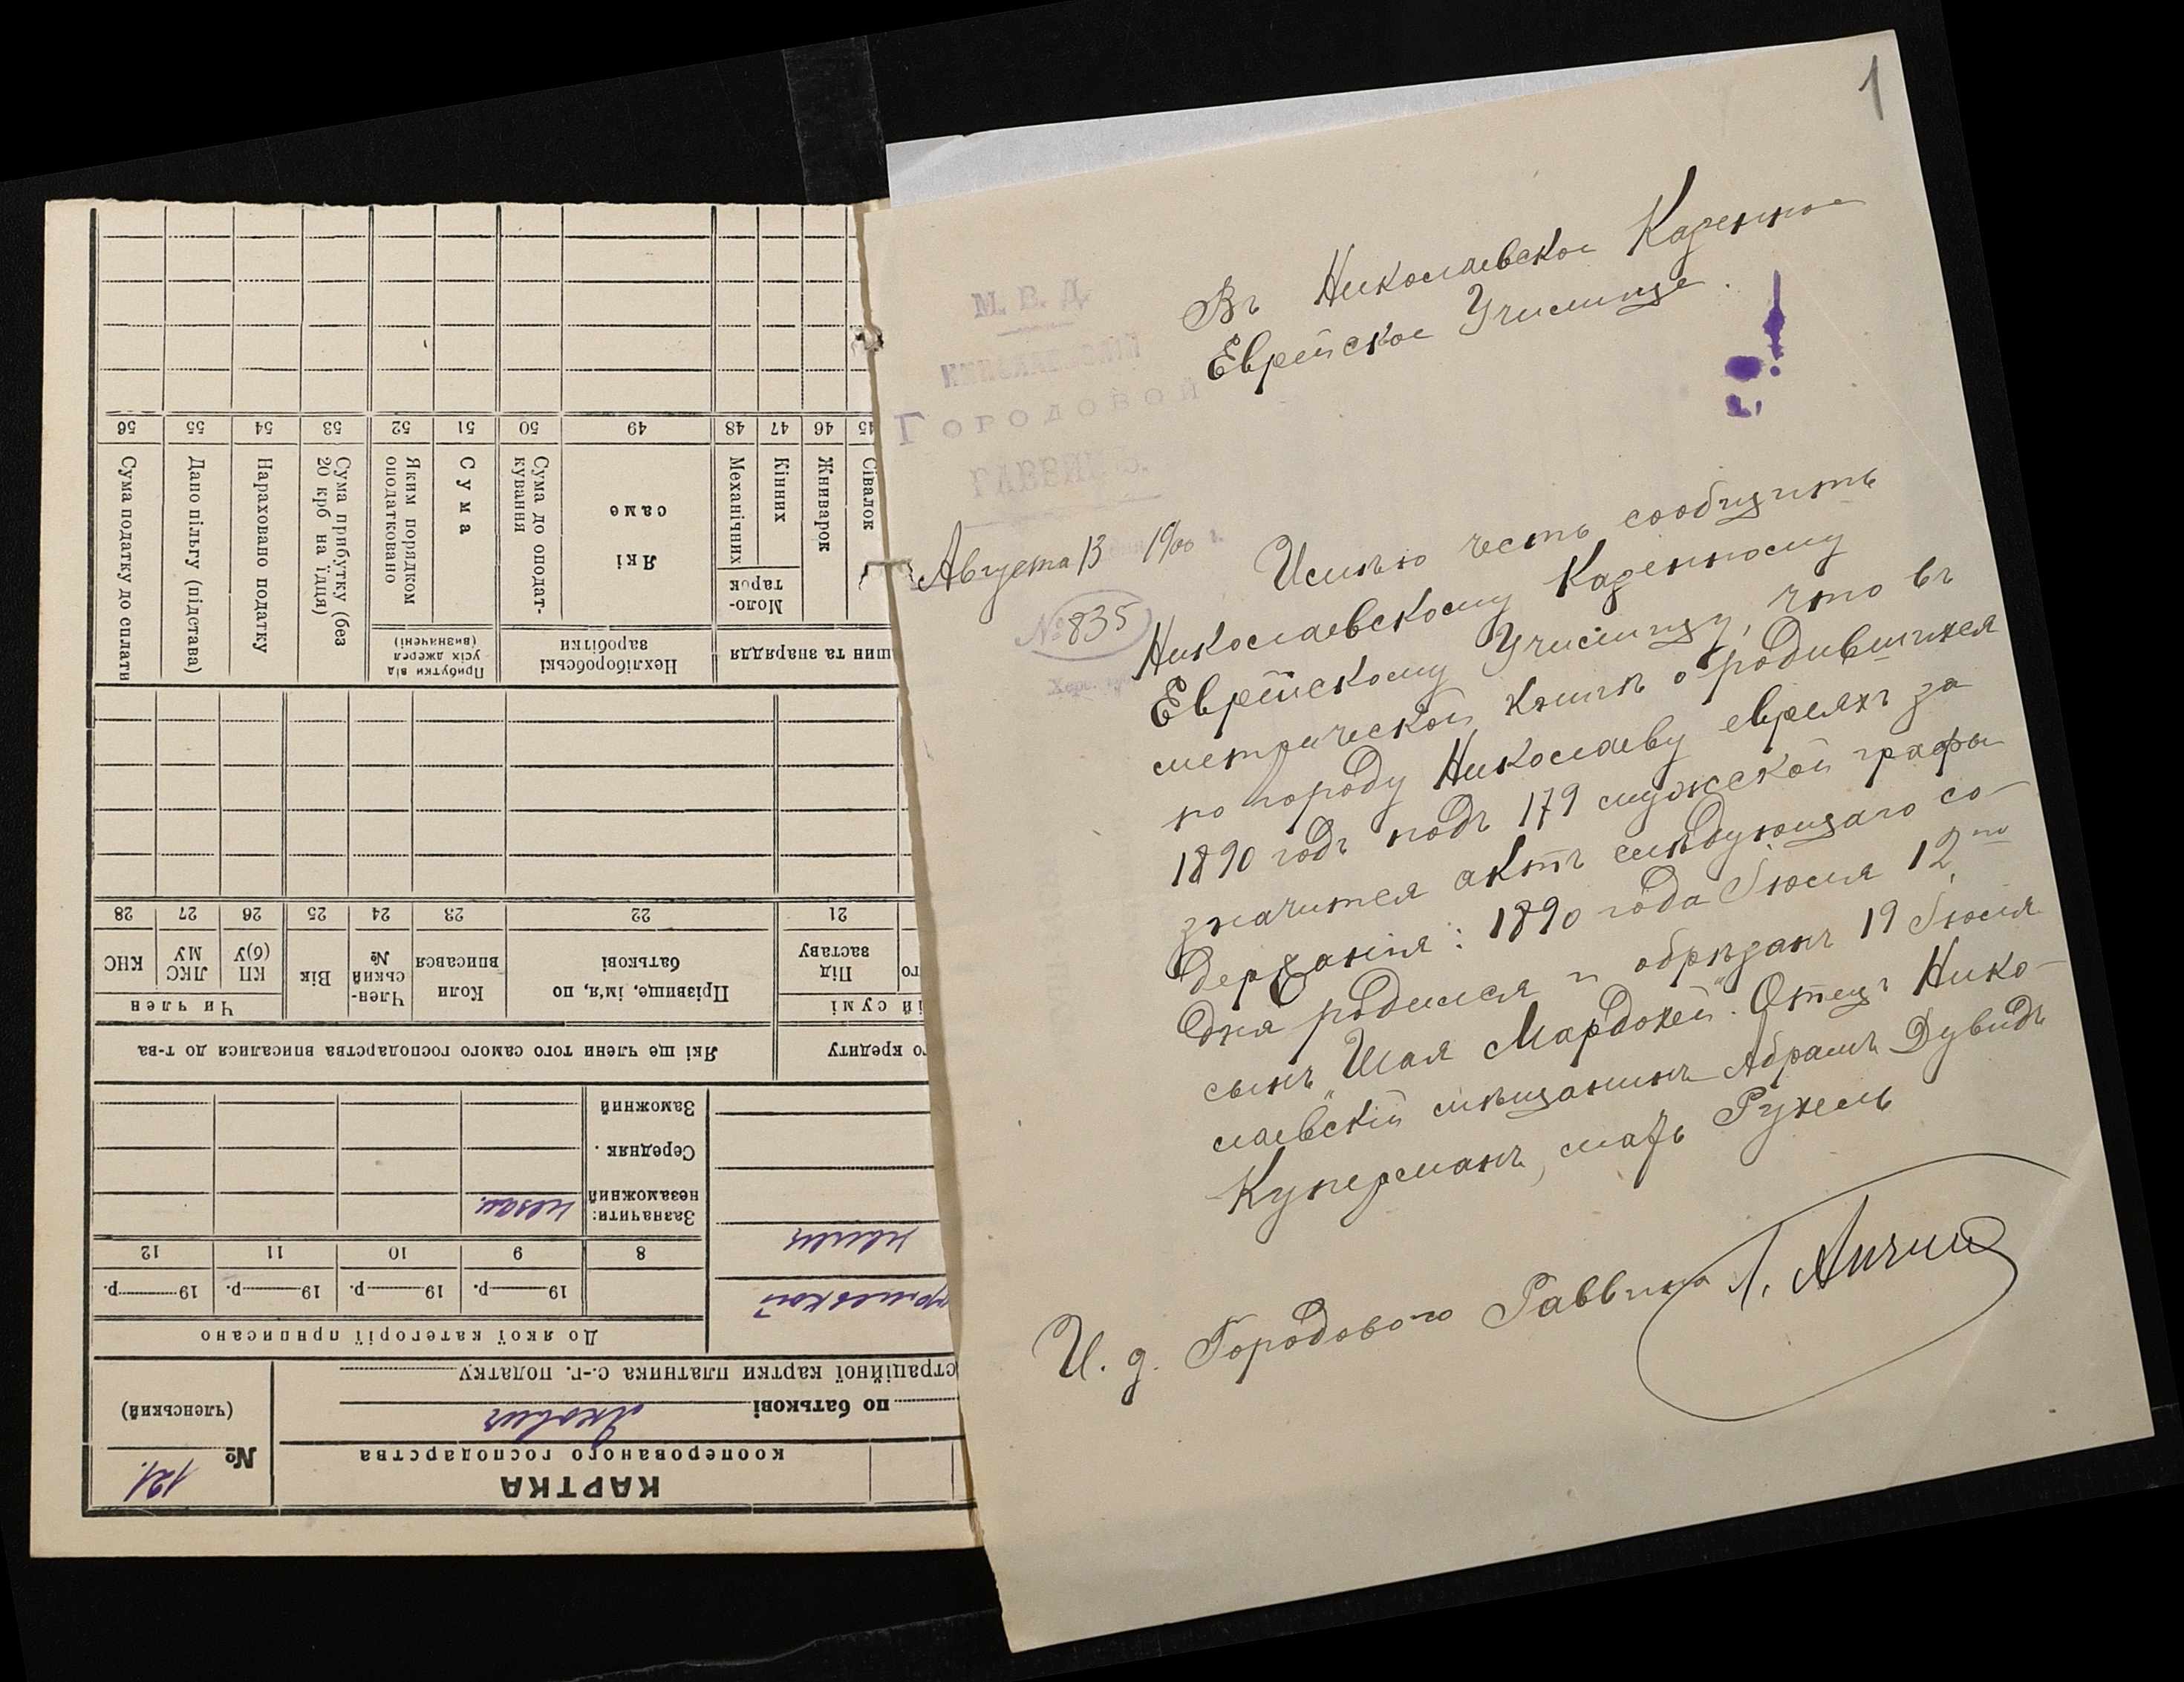 1
Въ Николаевское Казенное
Еврейское Училище.
М. В. Д.
НИКОЛАЕВСКІЙ
ГОРОДОВОЙ
РАВВИНЪ.
Августа 13 1900 г.
№ 835
Херс.
Имѣю честь сообщить
Николаевскому Казенному
Еврейскому Училищу, что въ
метрической книгѣ о родившихся
по городу Николаеву евреяхъ за
1890 годъ подъ 179 мужской графы
значится актъ слѣдующаго со-
держанія: 1890 года Іюля 12го
дня родился и обрѣзанъ 19 Іюля
сынъ "Шая Мардохей". Отецъ Нико-
лаевскій мѣщанинъ Абрамъ Дувидъ
Куперманъ, мать Рухель
И. д. Городового Раввина Л.
КАРТКА
кооперованого господарства
№ 121.
(членський)
по батькові Якович
страційної картки платника с.-г. податку
До якої категорії приписано
19 р. 19 р. 19 р. 19 р.
8 9 10 11 12
Зазначити:
незаможний незам.
Середняк
Заможний
го кредиту
Які ще члени того самого господарства вписалися до т-ва
ій сумі
Під заставу
Прізвище, ім'я, по батькові
Коли вписався
Член-ський №
Вік
Чи член
КП (б)У
ЛКС МУ
КНС
21 22 23 24 25 26 27 28
шин та знаряддя
Нехліборобські заробітки
Прибутки від усіх джерел (визначені)
Сівалок
Жниварок
Моло-тарок
Кінних
Механічних
Які саме
Сума до оподат-кування
Сума
Яким порядком оподатковано
Сума прибутку (без 20 крб на їдця)
Нараховано податку
Дано пільгу (підстава)
Сума податку до сплати
45 46 47 48 49 50 51 52 53 54 55 56